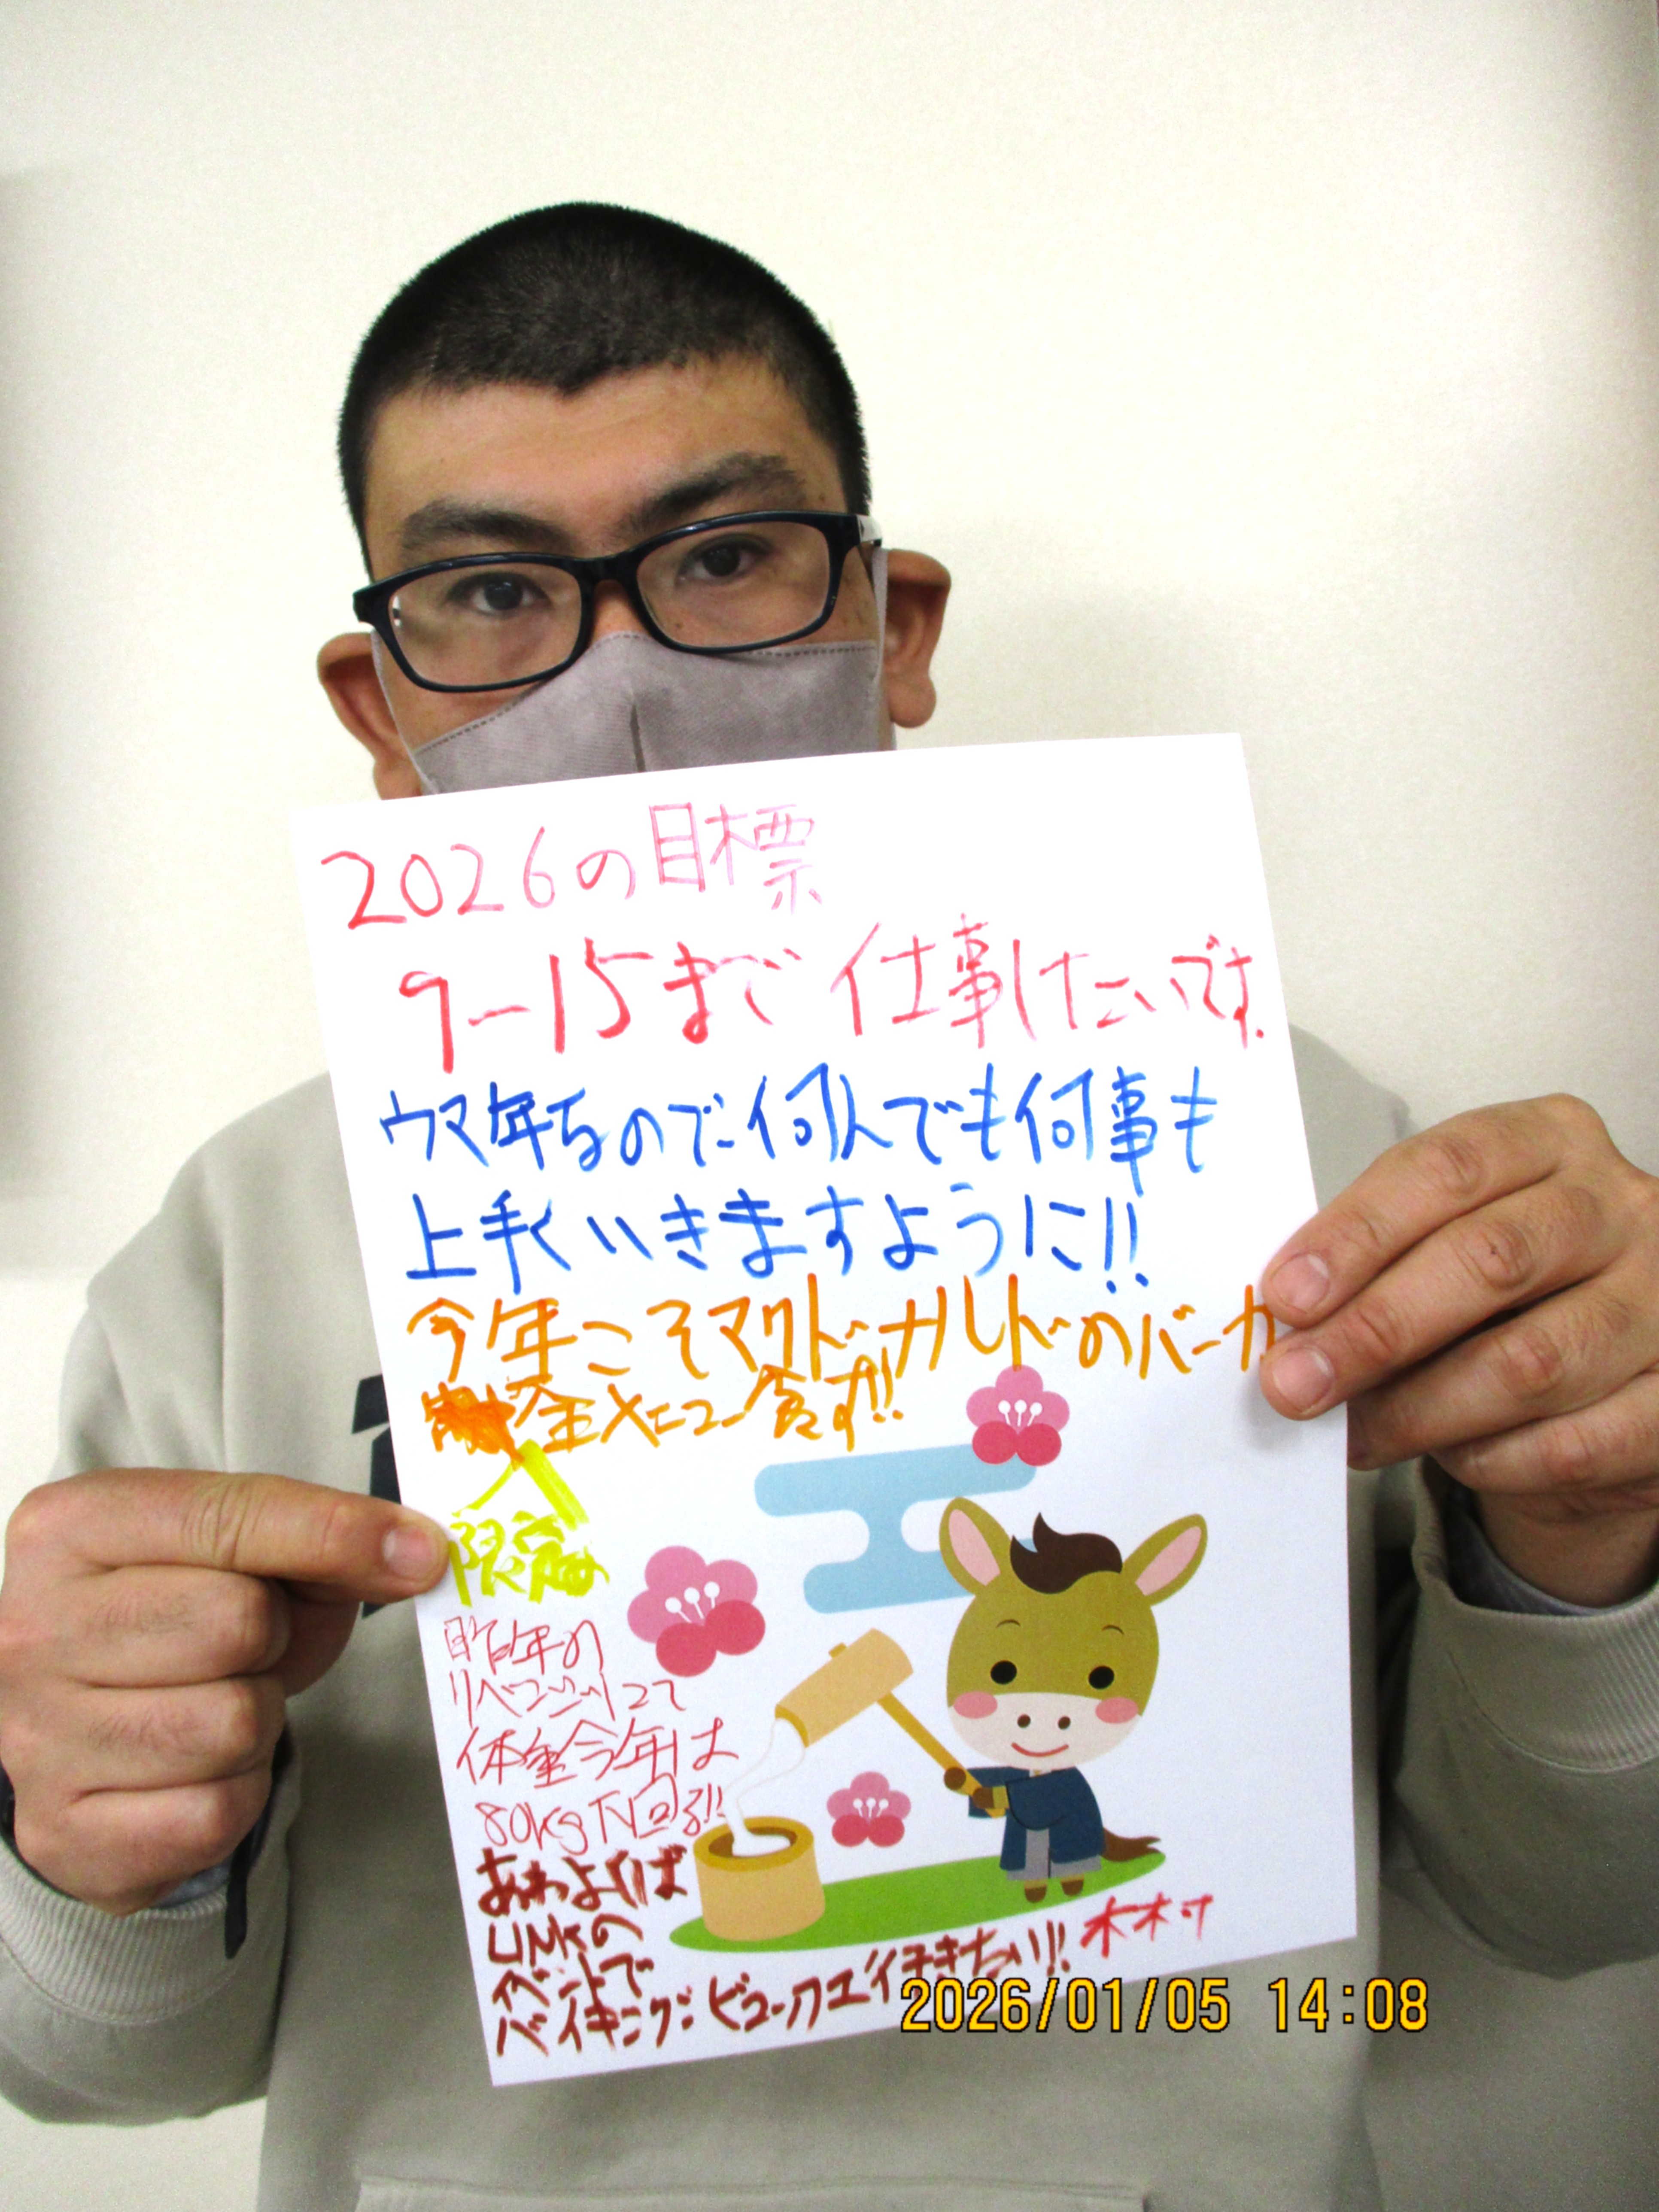 2026の目標
9-15まで仕事したいです.
ウマ年なので何んでも何事も
上手くいきますように!!
今年こそマクドナルドのバーガ
全メニュー食す!!
限定
昨年の
リベンジって
体重今年は
80kg下回る!!
あわよくば
LINKの
イベントで
バイキング:ビュッフェ行きたい!!
2026/01/05 14:08